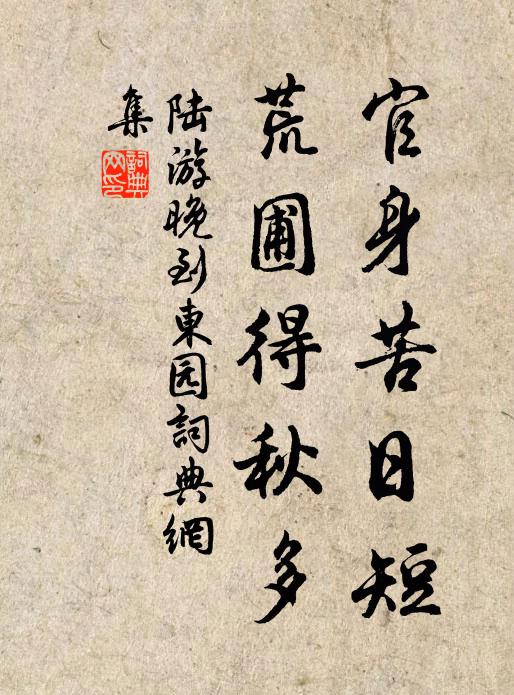 官身苦日短
荒圃得秋多
陆游晚到東园詞典網
集
詞典
网印